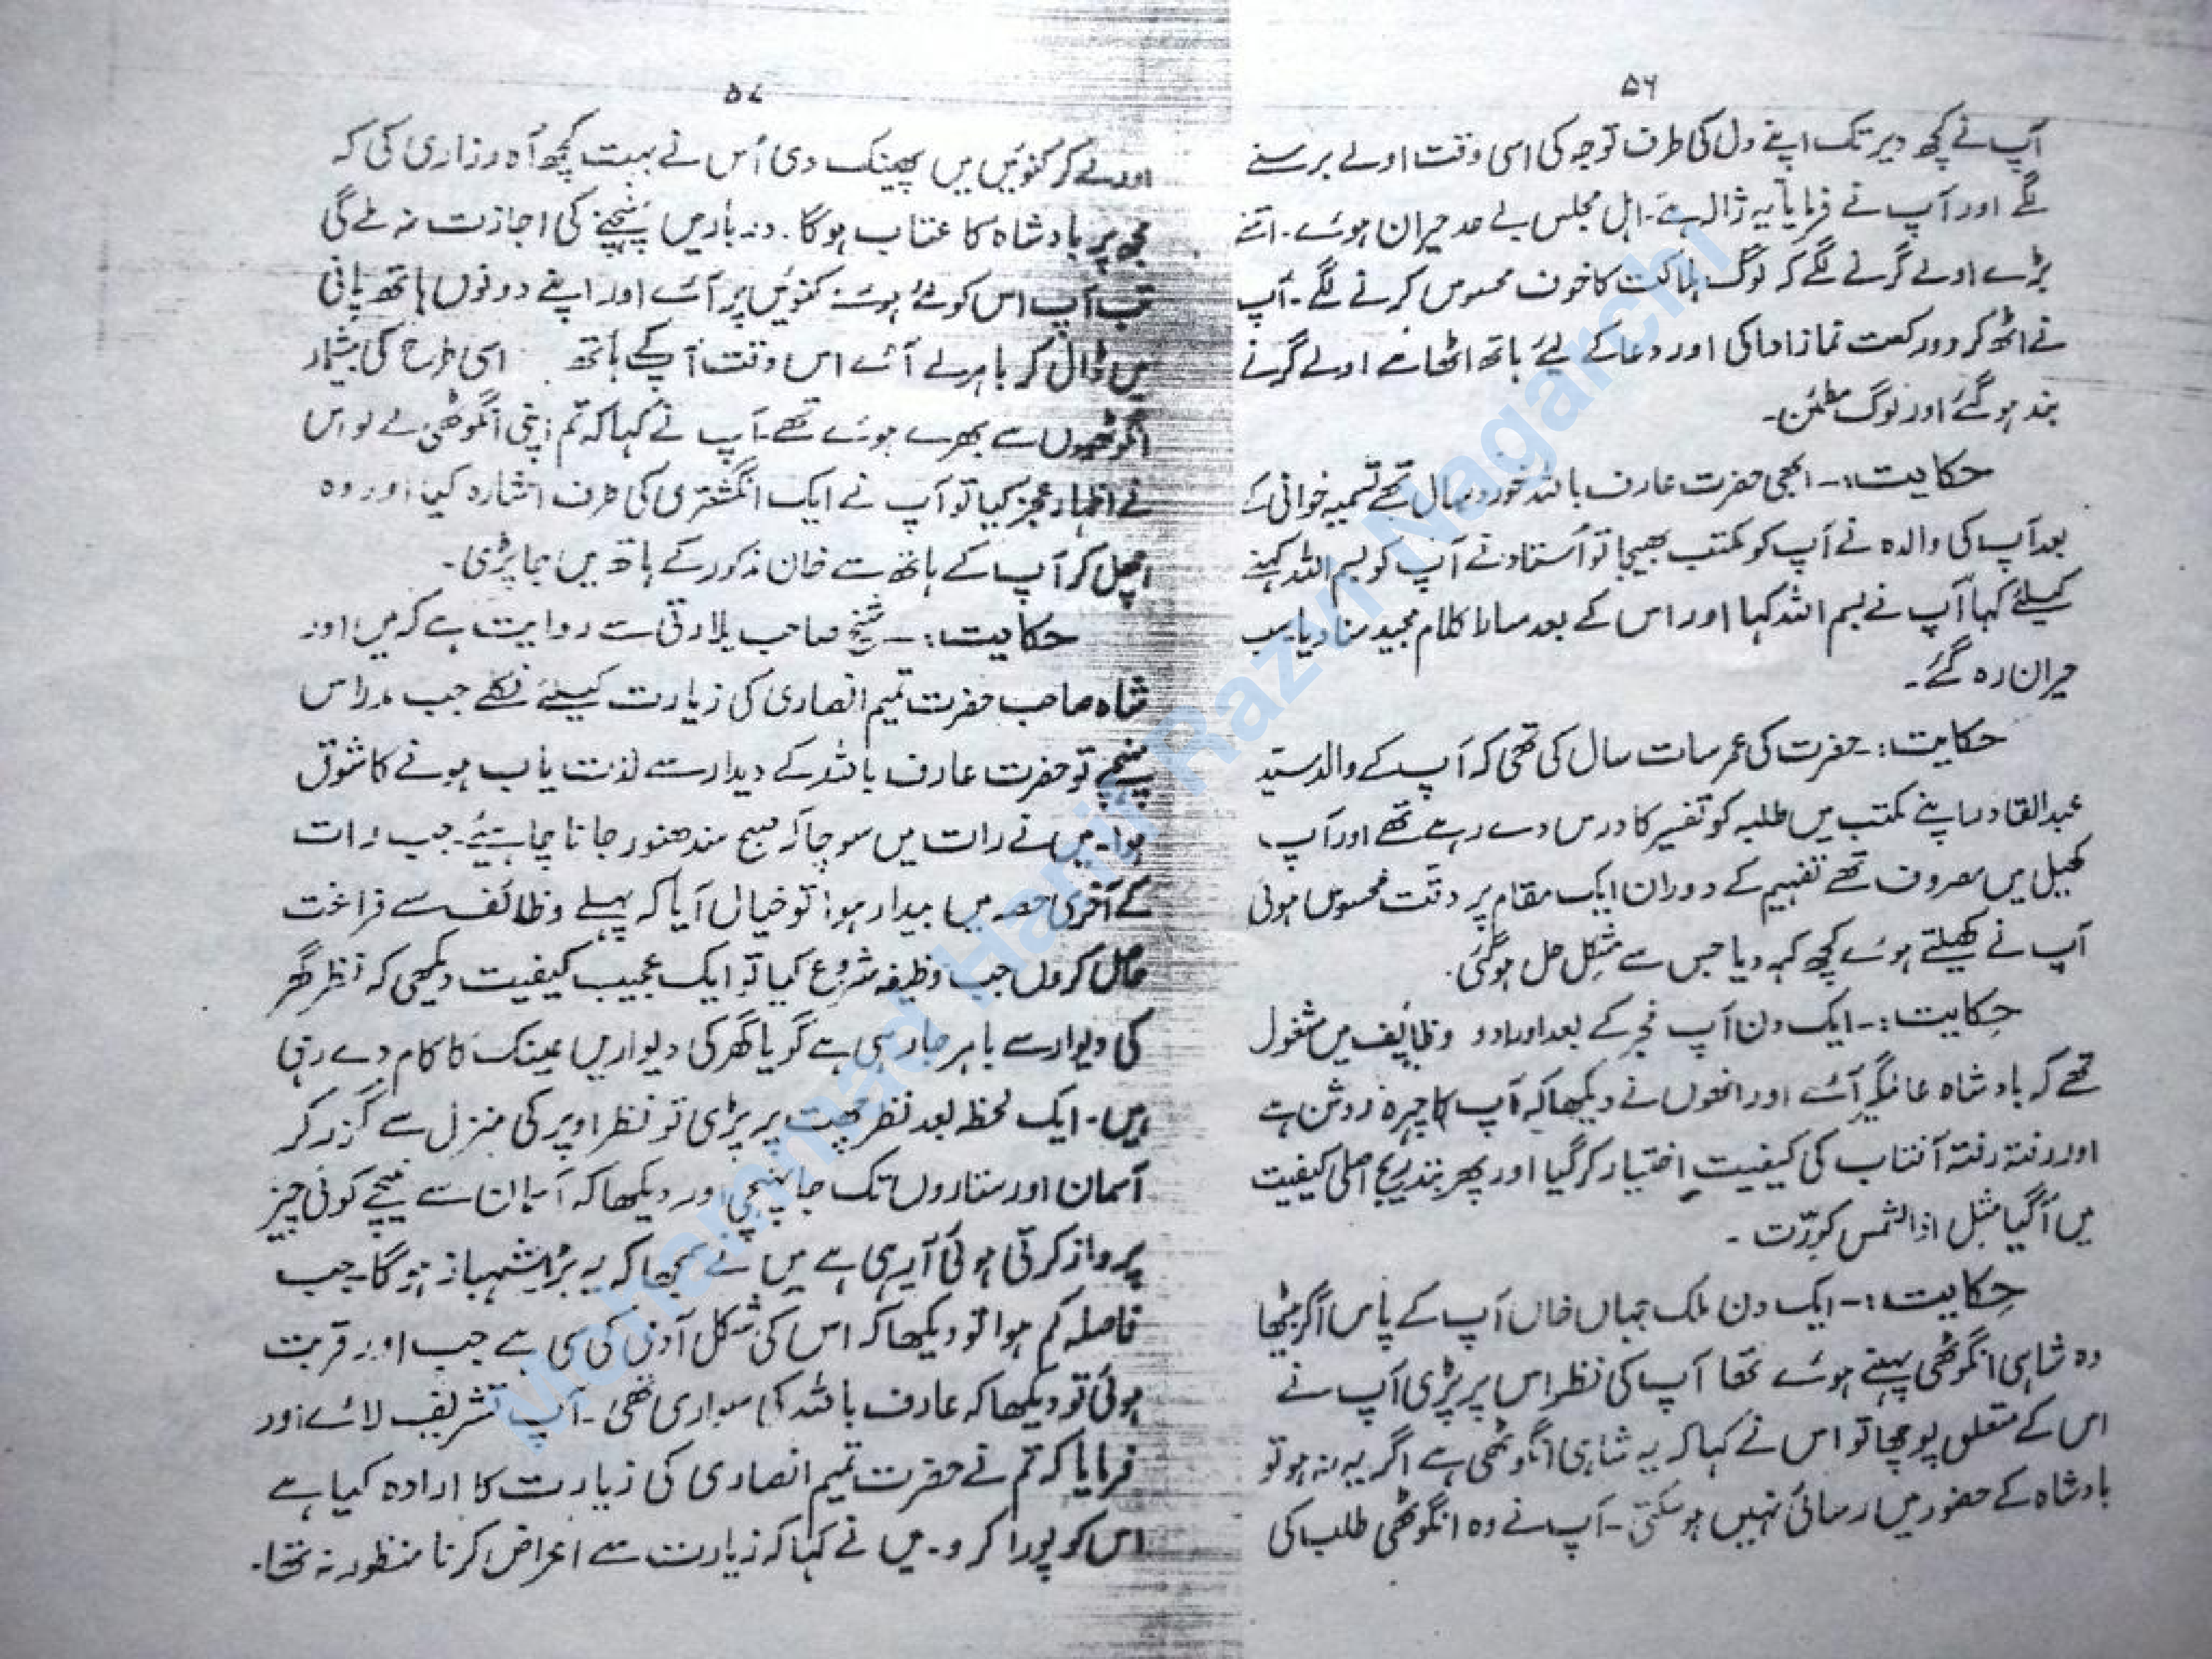 ۵۶
آپ نے کچھ دیر تک اپنے دل کی طرف توجہ کی اسی وقت اولے برسنے
لگے اور آپ نے فرمایا یہ ژالہ ہے۔ اہل مجلس بے حد حیران ہوئے۔ اتنے
بڑے اولے گرنے لگے کہ لوگ ہلاکت کا خوف محسوس کرنے لگے۔ آپ
نے اٹھ کر دو رکعت نماز ادا کی اور دعا کے لئے ہاتھ اٹھائے اولے گرنے
بند ہو گئے اور لوگ مطمئن۔
حکایت:۔ ابھی حضرت عارف باللہ خورد سال تھے تسمیہ خوانی کے
بعد آپ کی والدہ نے آپ کو مکتب بھیجا تو اُستاد نے آپ کو بسم اللہ کہنے
کیلئے کہا آپ نے بسم اللہ کہا اور اس کے بعد سارا کلام مجید سنا دیا سب
حیران رہ گئے۔
حکایت:۔ حضرت کی عمر سات سال کی تھی کہ آپ کے والد سید
عبدالقادر اپنے مکتب میں طلبہ کو تفسیر کا درس دے رہے تھے اور آپ
کھیل میں مصروف تھے تفہیم کے دوران ایک مقام پر دقت محسوس ہوئی
آپ نے کھیلتے ہوئے کچھ کہہ دیا جس سے مشکل حل ہو گئی۔
حکایت:۔ ایک دن آپ فجر کے بعد اوراد و وظایف میں مشغول
تھے کہ بادشاہ عالمگیر آئے اور انھوں نے دیکھا کہ آپ کا چہرہ روشن ہے
اور رفتہ رفتہ آفتاب کی کیفیت اختیار کر گیا اور پھر بتدریج اصلی کیفیت
میں آ گیا مثل اذا الشمس کوّرت۔
حکایت:۔ ایک دن ملک جہاں خاں آپ کے پاس آکر بیٹھا
وہ شاہی انگوٹھی پہنے ہوئے تھا آپ کی نظر اس پر پڑی آپ نے
اس کے متعلق پوچھا تو اس نے کہا کہ یہ شاہی انگوٹھی ہے اگر یہ نہ ہو تو
بادشاہ کے حضور میں رسائی نہیں ہو سکتی۔ آپ نے وہ انگوٹھی طلب کی
۵۷
اور لے کر کنوئیں میں پھینک دی اُس نے بہت کچھ آہ و زاری کی کہ
مجھ پر بادشاہ کا عتاب ہوگا۔ دربار میں پہنچنے کی اجازت نہ ملے گی
تب آپ اس کو لئے ہوئے کنوئیں پر آئے اور اپنے دونوں ہاتھ پانی
میں ڈال کر باہر لے آئے اس وقت آپ کے ہاتھ اسی طرح کی بیشمار
انگوٹھیوں سے بھرے ہوئے تھے۔ آپ نے کہا کہ تم اپنی انگوٹھی لے لو اس
نے اظہار عجز کیا تو آپ نے ایک انگشتری کی طرف اشارہ کیا اور وہ
اچھل کر آپ کے ہاتھ سے خان مذکور کے ہاتھ میں جا پڑی۔
حکایت:۔ شیخ صاحب سے روایت ہے کہ میں اور
شاہ صاحب حضرت تمیم انصاری کی زیارت کیلئے نکلے جب مدراس
پہنچے تو حضرت عارف باللہ کے دیدار سے لذت یاب ہونے کا شوق
ہوا۔ میں نے رات میں سوچا کہ صبح جانا چاہیئے۔ جب رات
کے آخری حصہ میں بیدار ہوا تو خیال آیا کہ پہلے وظائف سے فراغت
حاصل کر لوں جب وظیفہ شروع کیا تو ایک عجیب کیفیت دیکھی کہ نظر گھر
کی دیوار سے باہر جا رہی ہے گویا گھر کی دیواریں عینک کا کام دے رہی
ہیں۔ ایک لحظہ بعد نظر چھت پر پڑی تو نظر اوپر کی منزل سے گزر کر
آسمان اور ستاروں تک جا پہنچی اور دیکھا کہ آسمان سے نیچے کوئی چیز
پرواز کرتی ہوئی آ رہی ہے میں نے سمجھا کہ یہ بڑا شہباز ہو گا۔ جب
فاصلہ کم ہوا تو دیکھا کہ اس کی شکل آدمی کی سی ہے جب اور قربت
ہوئی تو دیکھا کہ عارف باللہ کی سواری تھی۔ آپ تشریف لائے اور
فرمایا کہ تم نے حضرت تمیم انصاری کی زیارت کا ارادہ کیا ہے
اس کو پورا کرو۔ میں نے کہا کہ زیارت سے اعراض کرنا منظور نہ تھا۔
Mohammad Hanif Razvi Nagarchi